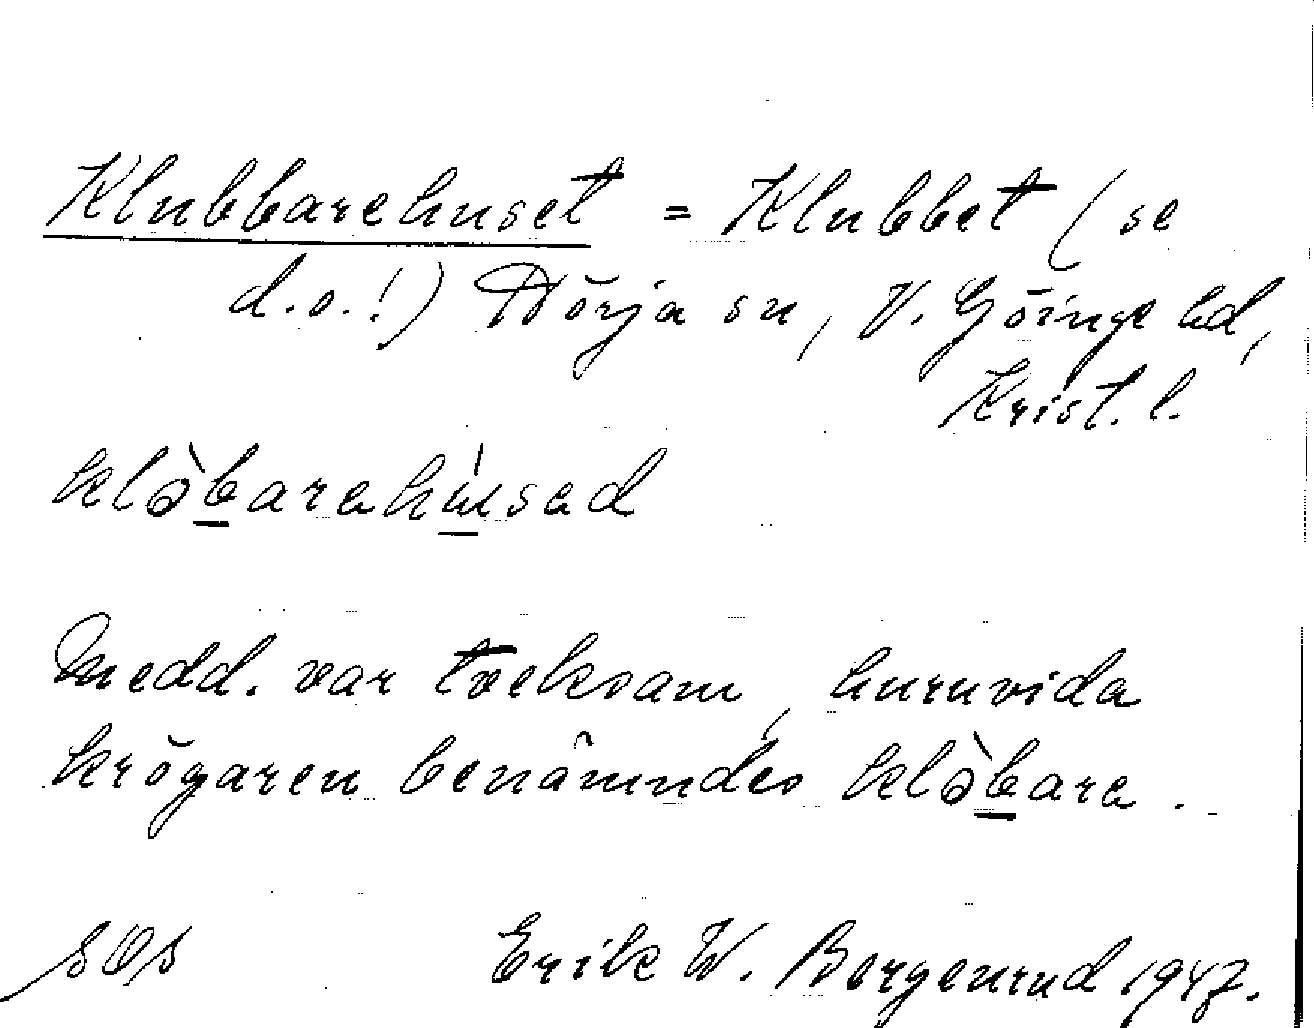 Klubbarehuset = Klubbet (se
d.o.!) Nörja sn, V. Göinge hd,
Krist. l.
klə̀barehúsed
Medd. var tveksam, huruvida
krögaren benämndes klə̀bara.
SOS Erik W. Borgenrud 1947.